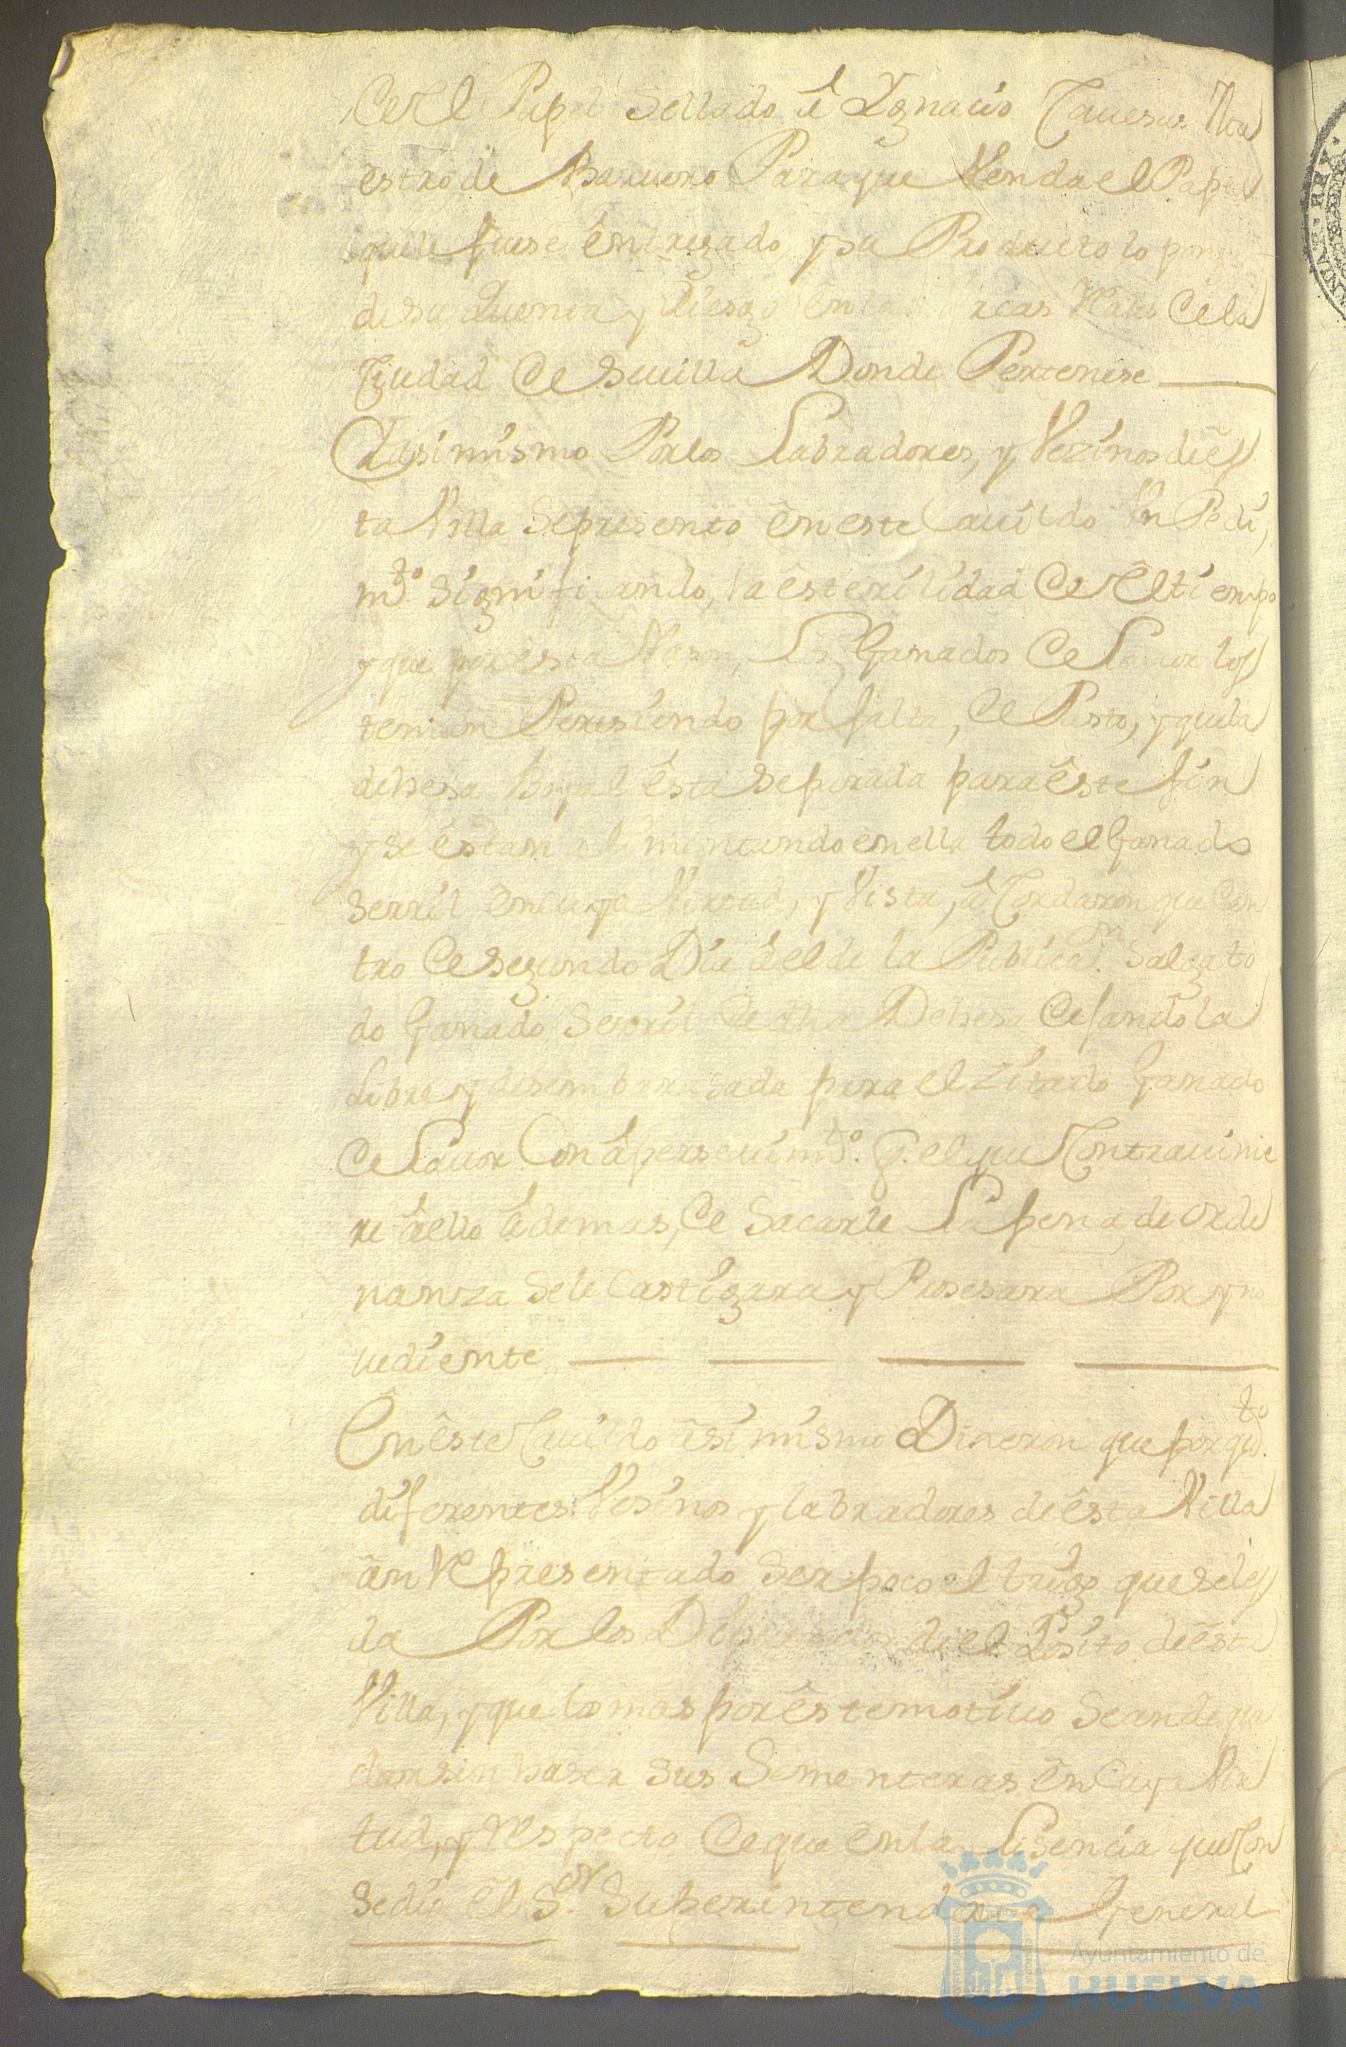 de el Papel Sellado â Ygnacio Ma
estro de Barvero Para que Venda el Papel
que le fuese êntregado y su Producto lo pong
de su Quenta y Riesgo en las Arcas Rales de la
Ziudad de Sevilla Donde Pertenese
Asimismo Por los Labradores, y Vezinos de ês
ta Villa Se presento ên este Cavildo Un Pedi,
mto. Significando, la êsterilidad de el tiempo
y que por esta Rason, Los Ganados de Lavor los
tenian Peresiendo por falta, de Pasto, y que la
dehesa Boyal êsta Separada para êste fin
y se êstan alimentando en ella todo el Ganado
Serril en cuya Virtud, y Vista, âCordaron que den
tro de Segundo Dia â el de la Publicaon. Salga to
do Ganado Serril de dha Dehesa Dejandola
Libre y desembarasada para el Zitado Ganado
de Lavor Con âpersevimto. q. el que Contravinie
re âello âdemas, de Sacarle La pena de orde
nanza Se le Castigara y Prosesara Por yno
vediente
En êste Cavildo âsimismo Dixeron que por qto.
diferentes Vesinos y labradores de êsta Villa
ân Representado Ser poco el trigo que se les
da Por los Diputados de el Posito de êsta
Villa, y que los mas por êste motivo Se an de que
dar sin haser sus Sementeras ên Cuya Vir
tud, y Respecto de que ên la Lisencia que Con
sedio êl Sor. Superintendente General
Ayuntamiento de
HUELVA